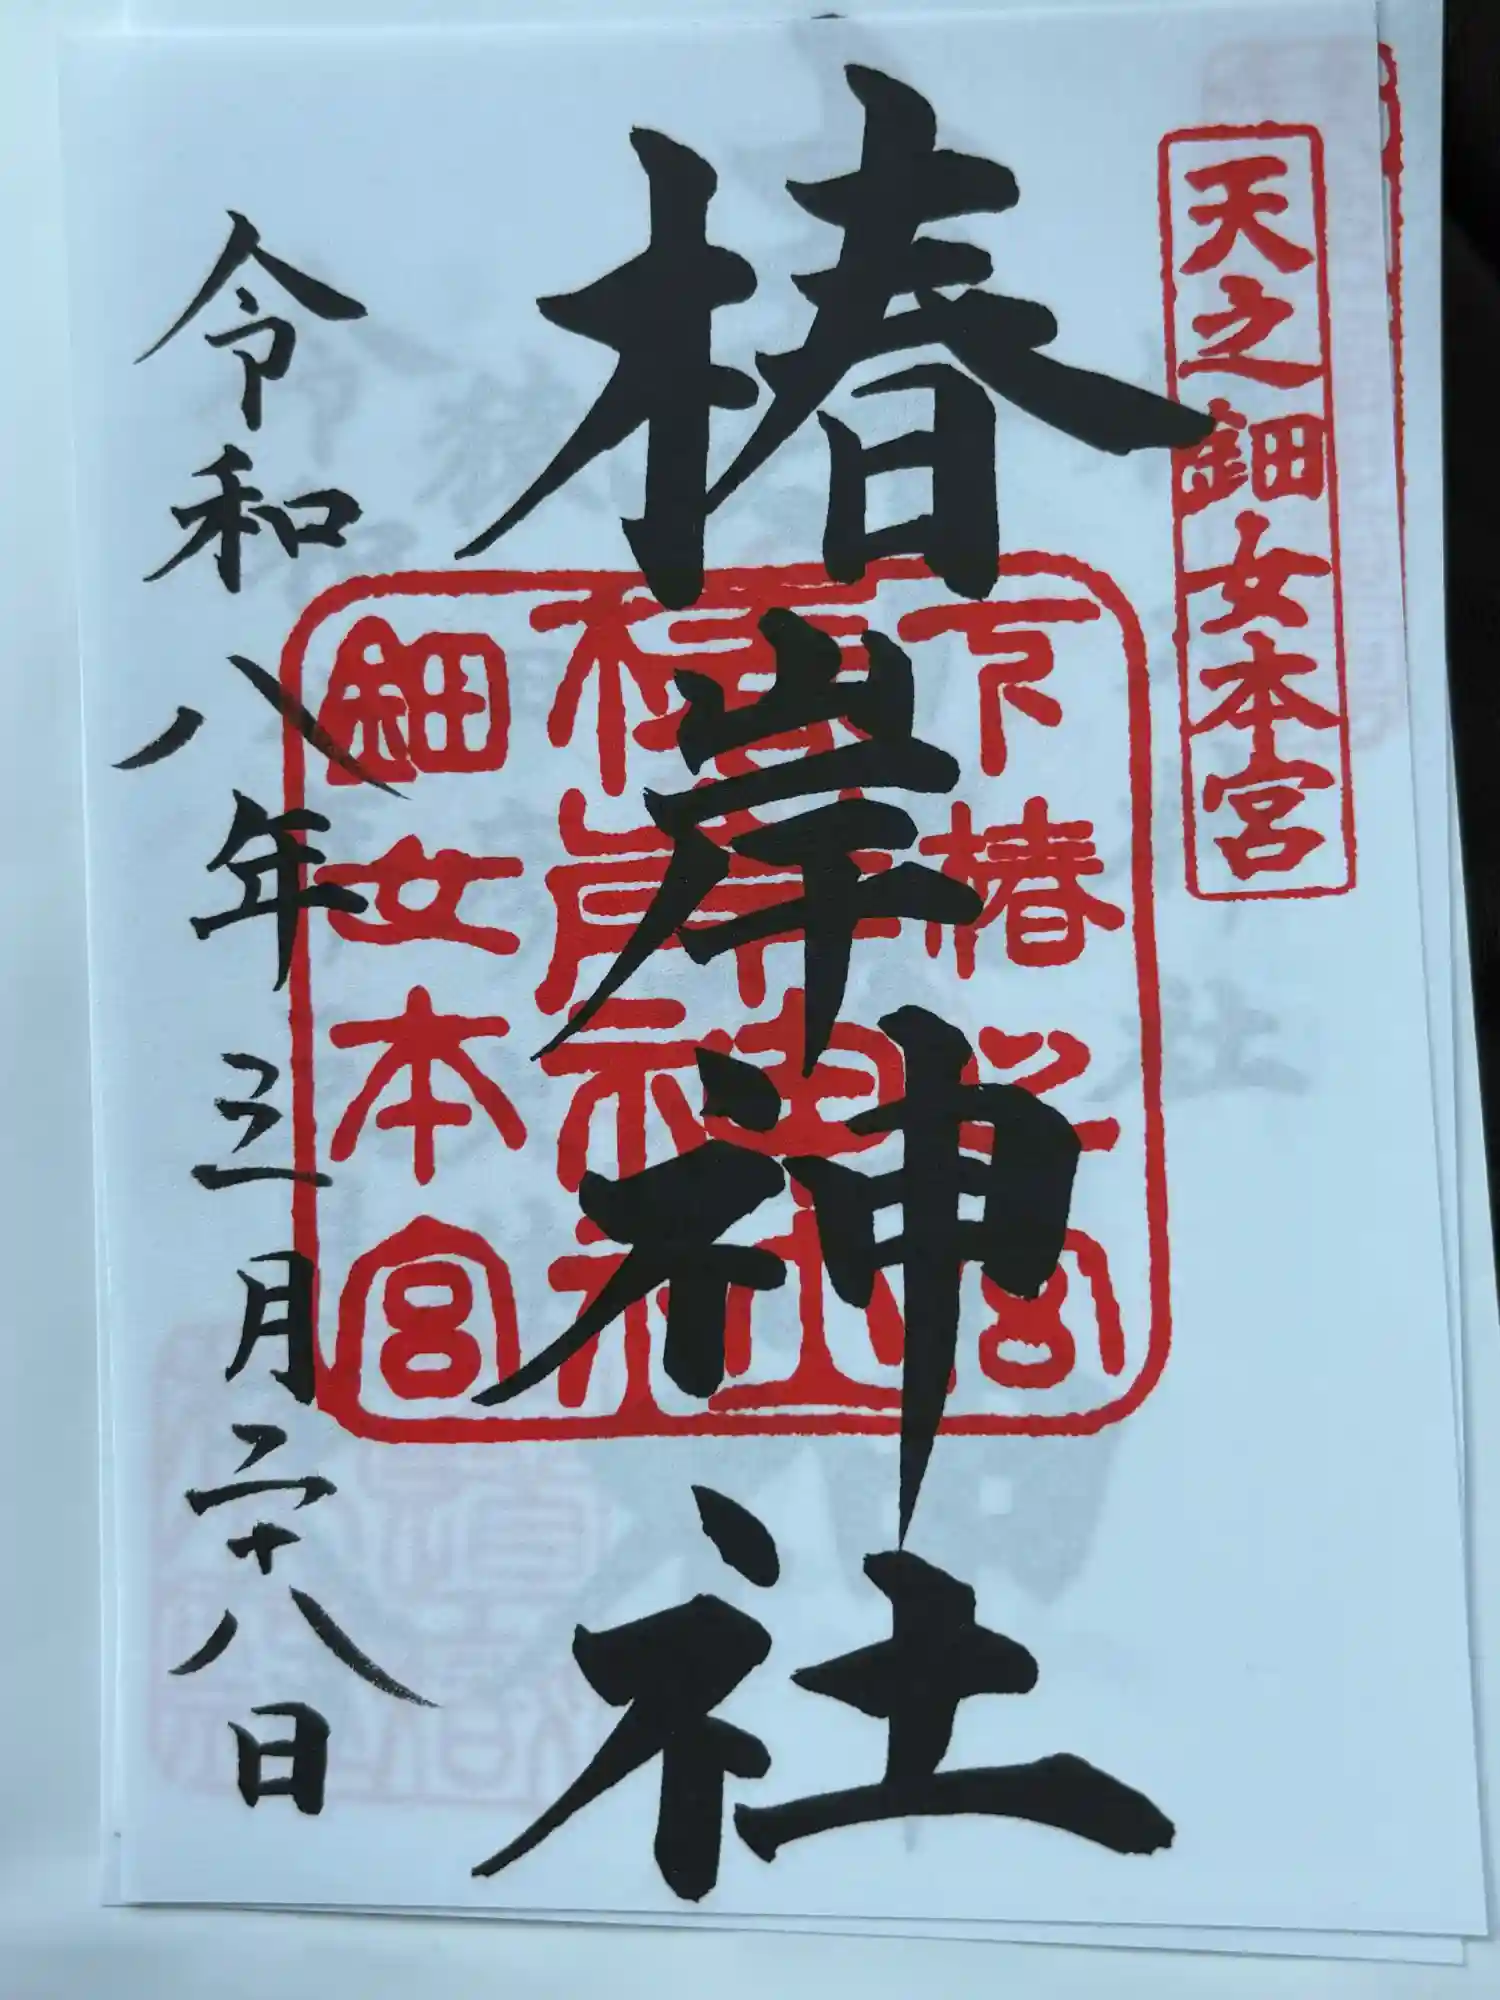 天之鈿女本宮
椿岸神社
下椿之宮
椿岸神社
鈿女本宮
令和八年三月二十八日